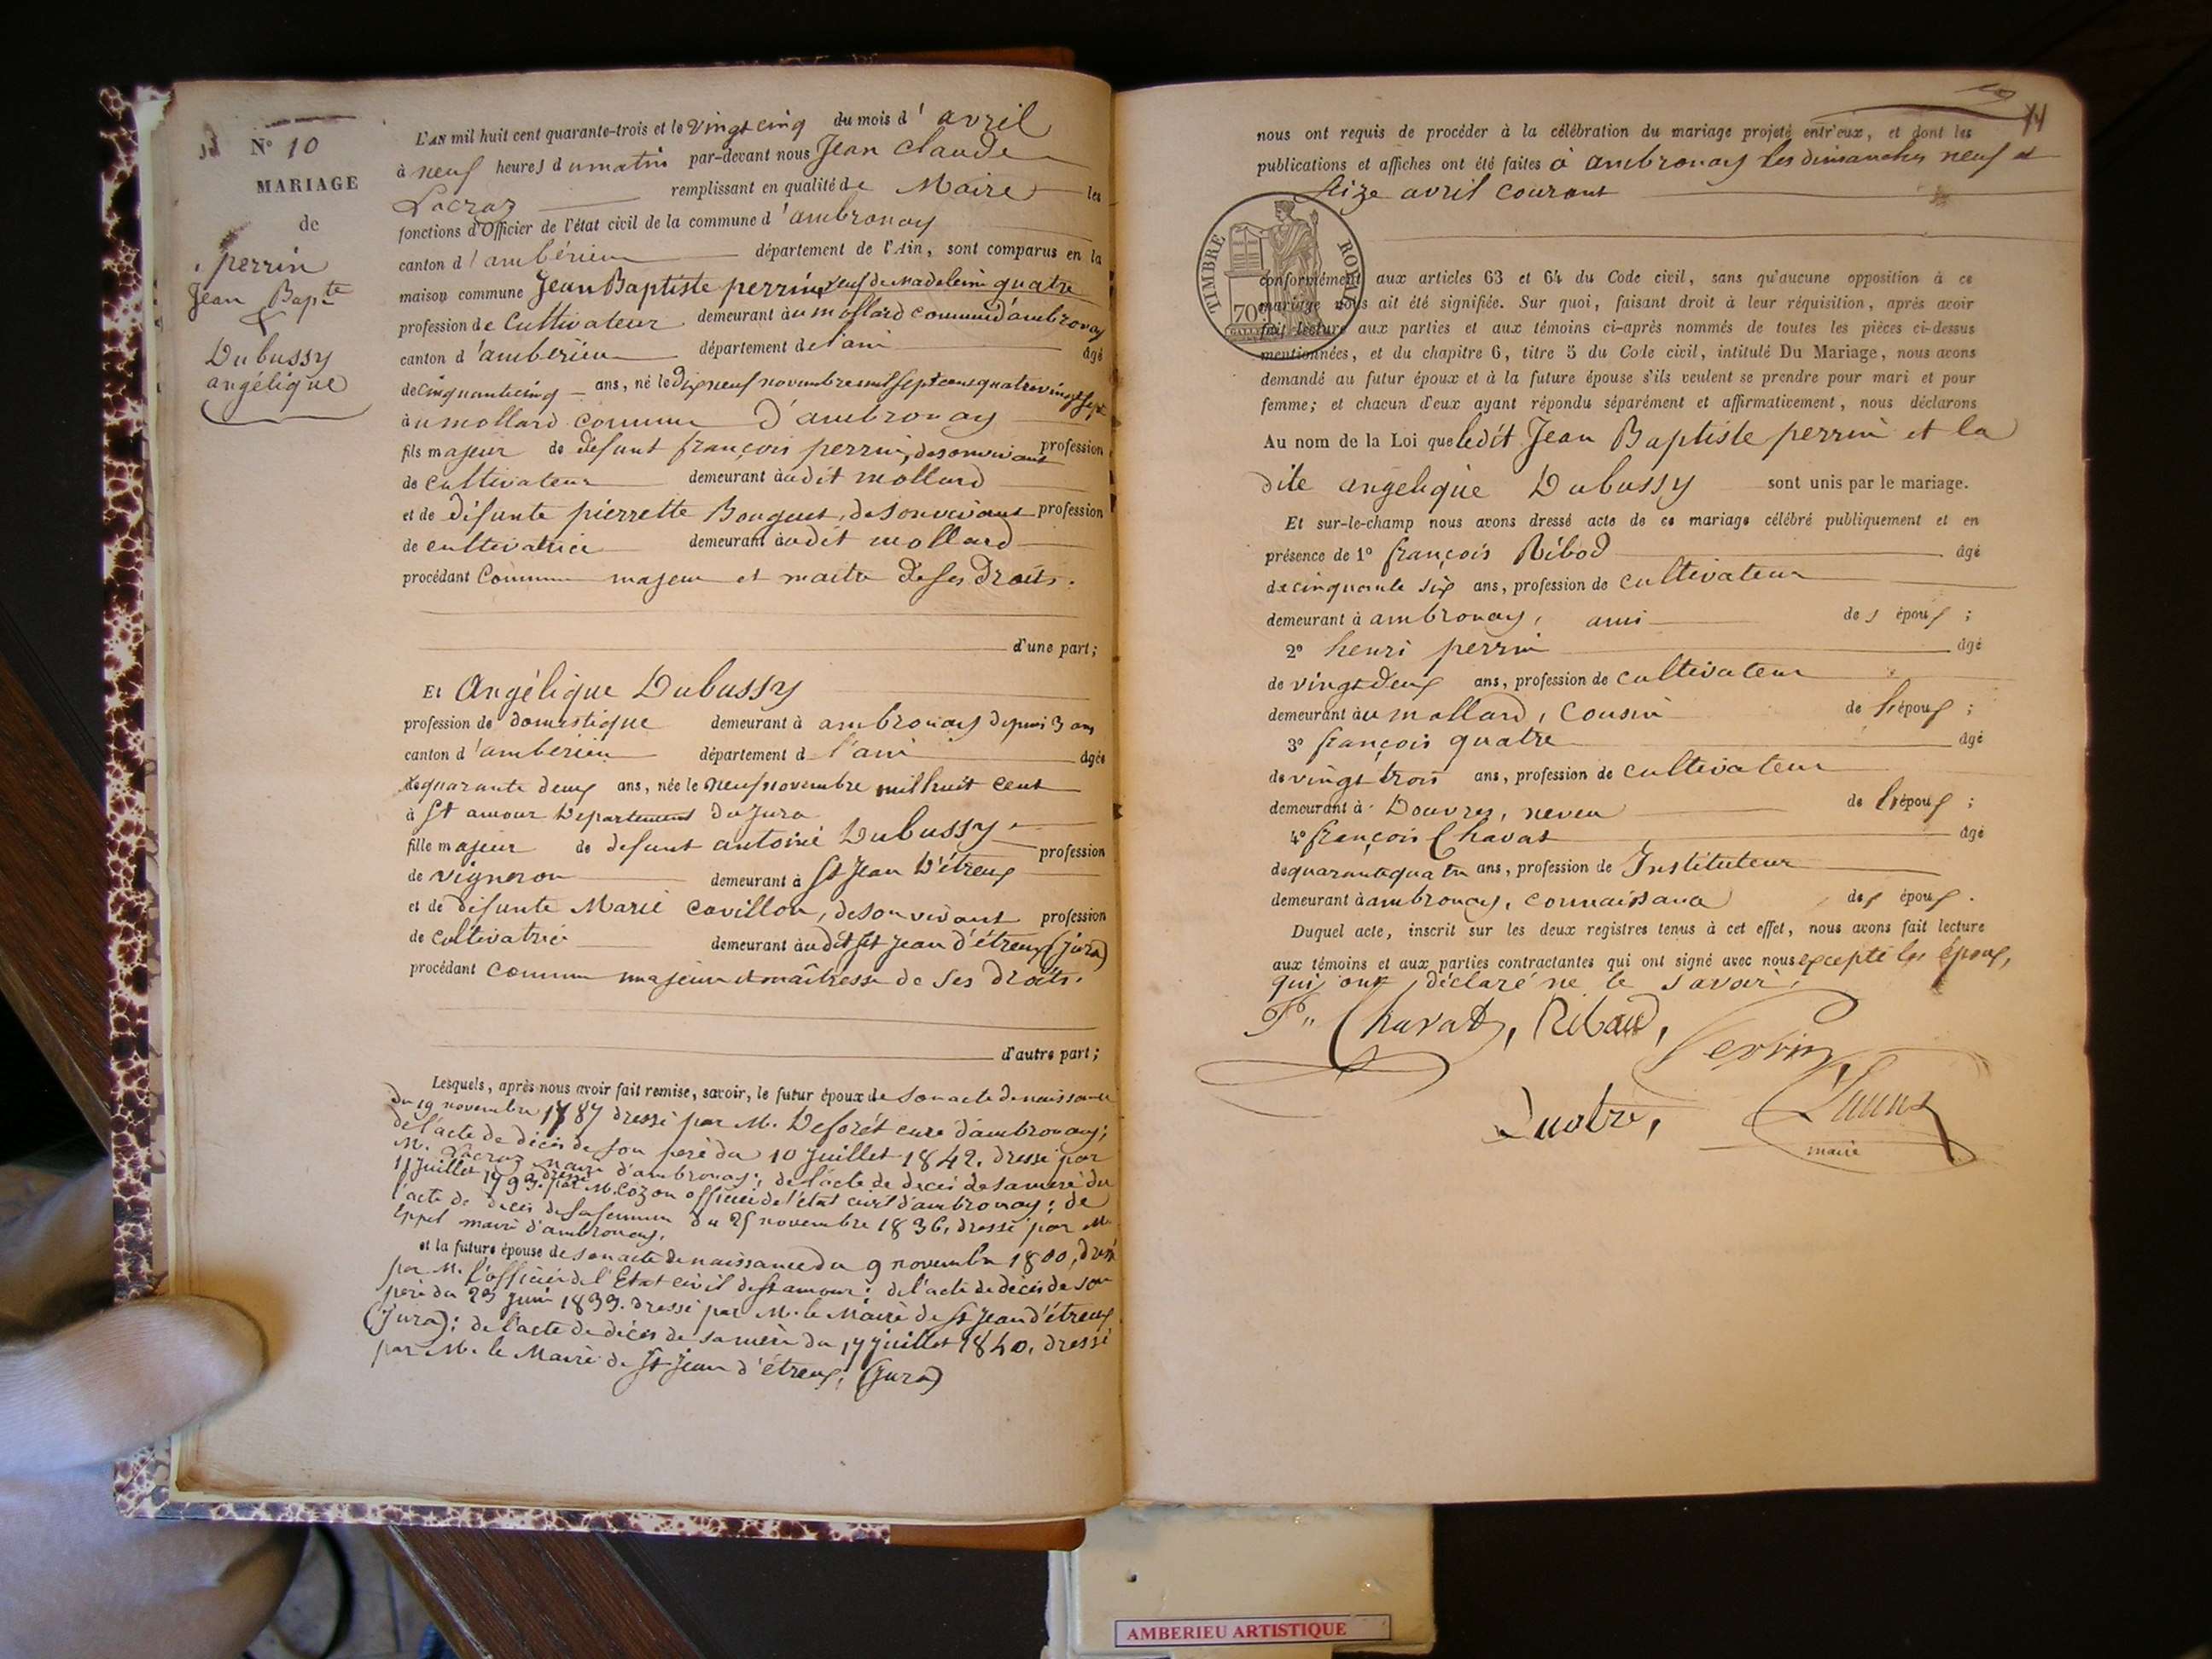 N° 10
MARIAGE
de
perrin
Jean Bapte
&
Dubussy
angélique
L'AN mil huit cent quarante-trois et le vingt cinq du mois d'avril
à neuf heures du matin par-devant nous Jean Claude
Lacroz remplissant en qualité de Maire les
fonctions d'Officier de l'état civil de la commune d'ambronay
canton d'ambérieu département de l'Ain, sont comparus en la
maison commune Jean Baptiste perrin, veuf de Madeleine quatre
profession de Cultivateur demeurant au mollard commune d'ambronay
canton d'amberieu département de l'ain âgé
de cinquante cinq ans, né le dix neuf novembre mil sept cent quatre vingt sept
au mollard commune d'ambronay
fils majeur de défunt françois perrin, de son vivant profession
de cultivateur demeurant audit mollard
et de défunte pierrette Bouguet, de son vivant profession
de cultivatrice demeurant audit mollard
procédant Comme majeur et maitre de ses droits.
d'une part;
Et Angélique Dubussy
profession de domestique demeurant à ambronay depuis 3 ans
canton d'amberieu département d l'ain âgée
de quarante deux ans, née le neuf novembre mil huit cent
à St amour Departement du Jura
fille majeur de defunt antoine Dubussy profession
de vigneron demeurant à St Jean D'étreux
et de défunte Marie Cavillon, de son vivant profession
de cultivatrice demeurant audit St Jean d'étreux (jura)
procédant comme majeure et maîtresse de ses droits.
d'autre part;
Lesquels, après nous avoir fait remise, savoir, le futur époux de son acte de naissance
du 19 novembre 1787 dressé par M. Deforêt curé d'ambronay;
de l'acte de décès de son père du 10 Juillet 1842, dressé par
M. Lacroz maire d'ambronay; de l'acte de décès de sa mère du
11 Juillet 1793. dressé par M. Cozon officier de l'état civil d'ambronay; de
l'acte de décès de sa femme du 25 novembre 1836, dressé par M.
Eppel maire d'ambronay,
et la future épouse de son acte de naissance du 9 novembre 1800, dressé
par M. l'officier de l'Etat civil de St amour; de l'acte de décès de son
père du 23 Juin 1839. dressé par M. le Maire de St Jean d'étreux
(Jura); de l'acte de décès de sa mère du 17 juillet 1840, dressé
par M. le Maire de St Jean d'étreux, (Jura)
nous ont requis de procéder à la célébration du mariage projeté entr'eux, et dont les
publications et affiches ont été faites à ambronay les dimanches neuf et
seize avril courant
TIMBRE ROYAL
70c
conformément aux articles 63 et 64 du Code civil, sans qu'aucune opposition à ce
mariage nous ait été signifiée. Sur quoi, faisant droit à leur réquisition, après avoir
fait lecture aux parties et aux témoins ci-après nommés de toutes les pièces ci-dessus
mentionnées, et du chapitre 6, titre 5 du Code civil, intitulé Du Mariage, nous avons
demandé au futur époux et à la future épouse s'ils veulent se prendre pour mari et pour
femme; et chacun d'eux ayant répondu séparément et affirmativement, nous déclarons
Au nom de la Loi que ledit Jean Baptiste perrin et la
dite angelique Dubussy sont unis par le mariage.
Et sur-le-champ nous avons dressé acte de ce mariage célébré publiquement et en
présence de 1° françois Ribod âgé
de cinquante six ans, profession de cultivateur
demeurant à ambronay, ami des époux;
2° henri perrin âgé
de vingt deux ans, profession de cultivateur
demeurant au mollard, cousin de l'époux;
3° françois quatre âgé
de vingt trois ans, profession de cultivateur
demeurant à Douvres, neveu de l'époux;
4° françois Chavat âgé
de quarante quatre ans, profession de Instituteur
demeurant à ambronay, connaissance des époux.
Duquel acte, inscrit sur les deux registres tenus à cet effet, nous avons fait lecture
aux témoins et aux parties contractantes qui ont signé avec nous excepté les époux,
qui ont déclaré ne le savoir.
Chavat, Ribaud,
Perrin
Quatre,
maire
AMBERIEU ARTISTIQUE